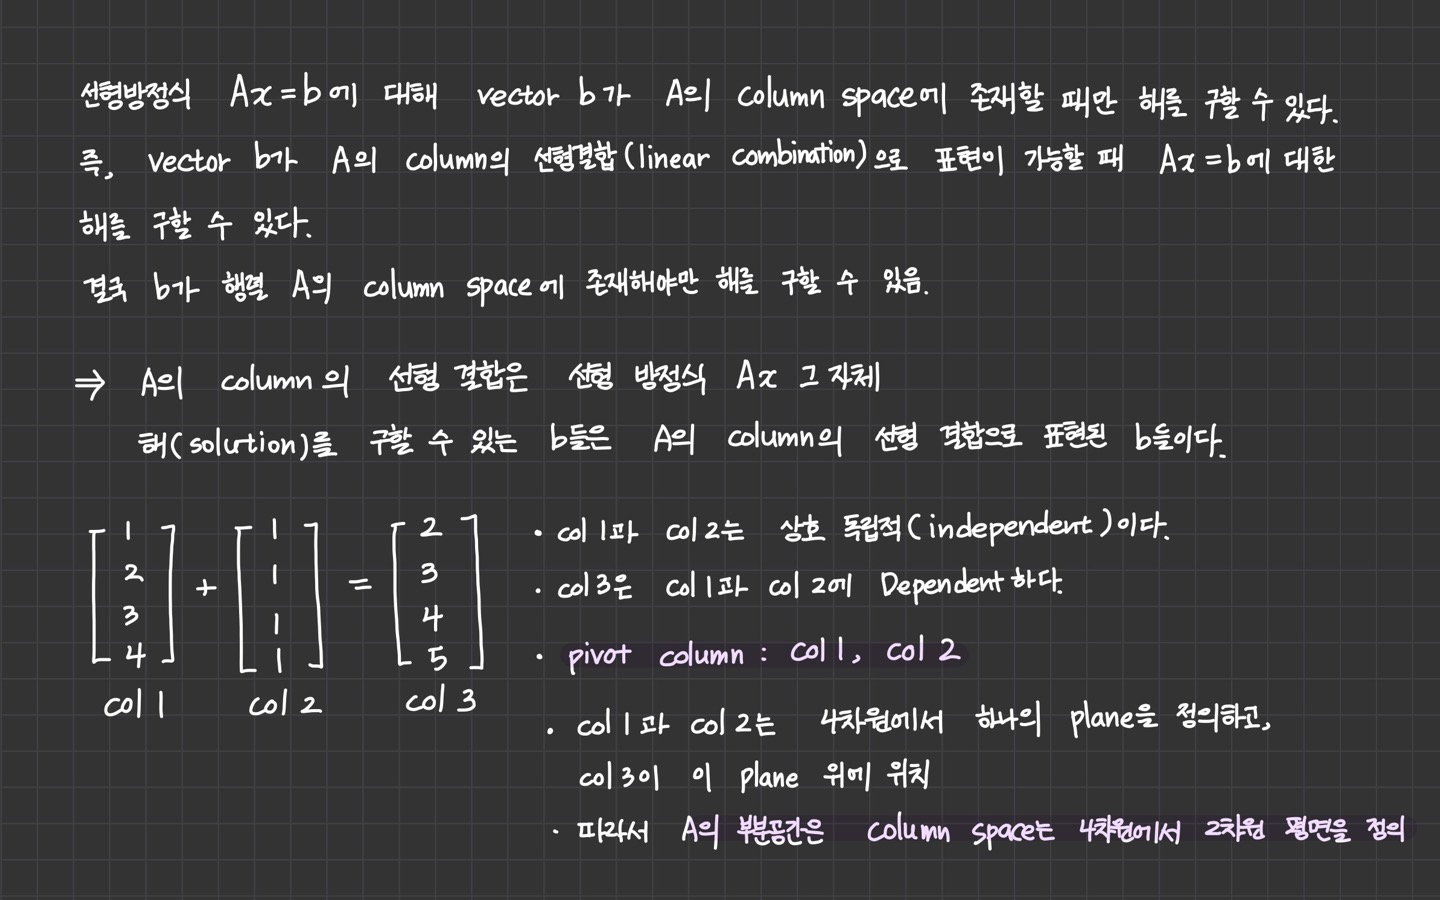 선형방정식 Ax=b에 대해 vector b가 A의 column space에 존재할 때만 해를 구할 수 있다.
즉, vector b가 A의 column의 선형결합(linear combination)으로 표현이 가능할 때 Ax=b에 대한
해를 구할 수 있다.
결국 b가 행렬 A의 column space에 존재해야만 해를 구할 수 있음.
⇒ A의 column의 선형 결합은 선형 방정식 Ax 그 자체
해(solution)를 구할 수 있는 b들은 A의 column의 선형 결합으로 표현된 b들이다.
[1 2 3 4] + [1 1 1 1] = [2 3 4 5]
col 1 col 2 col 3
· col 1과 col 2는 상호 독립적(independent)이다.
· col 3은 col 1과 col 2에 Dependent하다.
· pivot column : col 1, col 2
· col 1과 col 2는 4차원에서 하나의 plane을 정의하고,
col 3이 이 plane 위에 위치
· 따라서 A의 부분공간은 column space는 4차원에서 2차원 평면을 정의